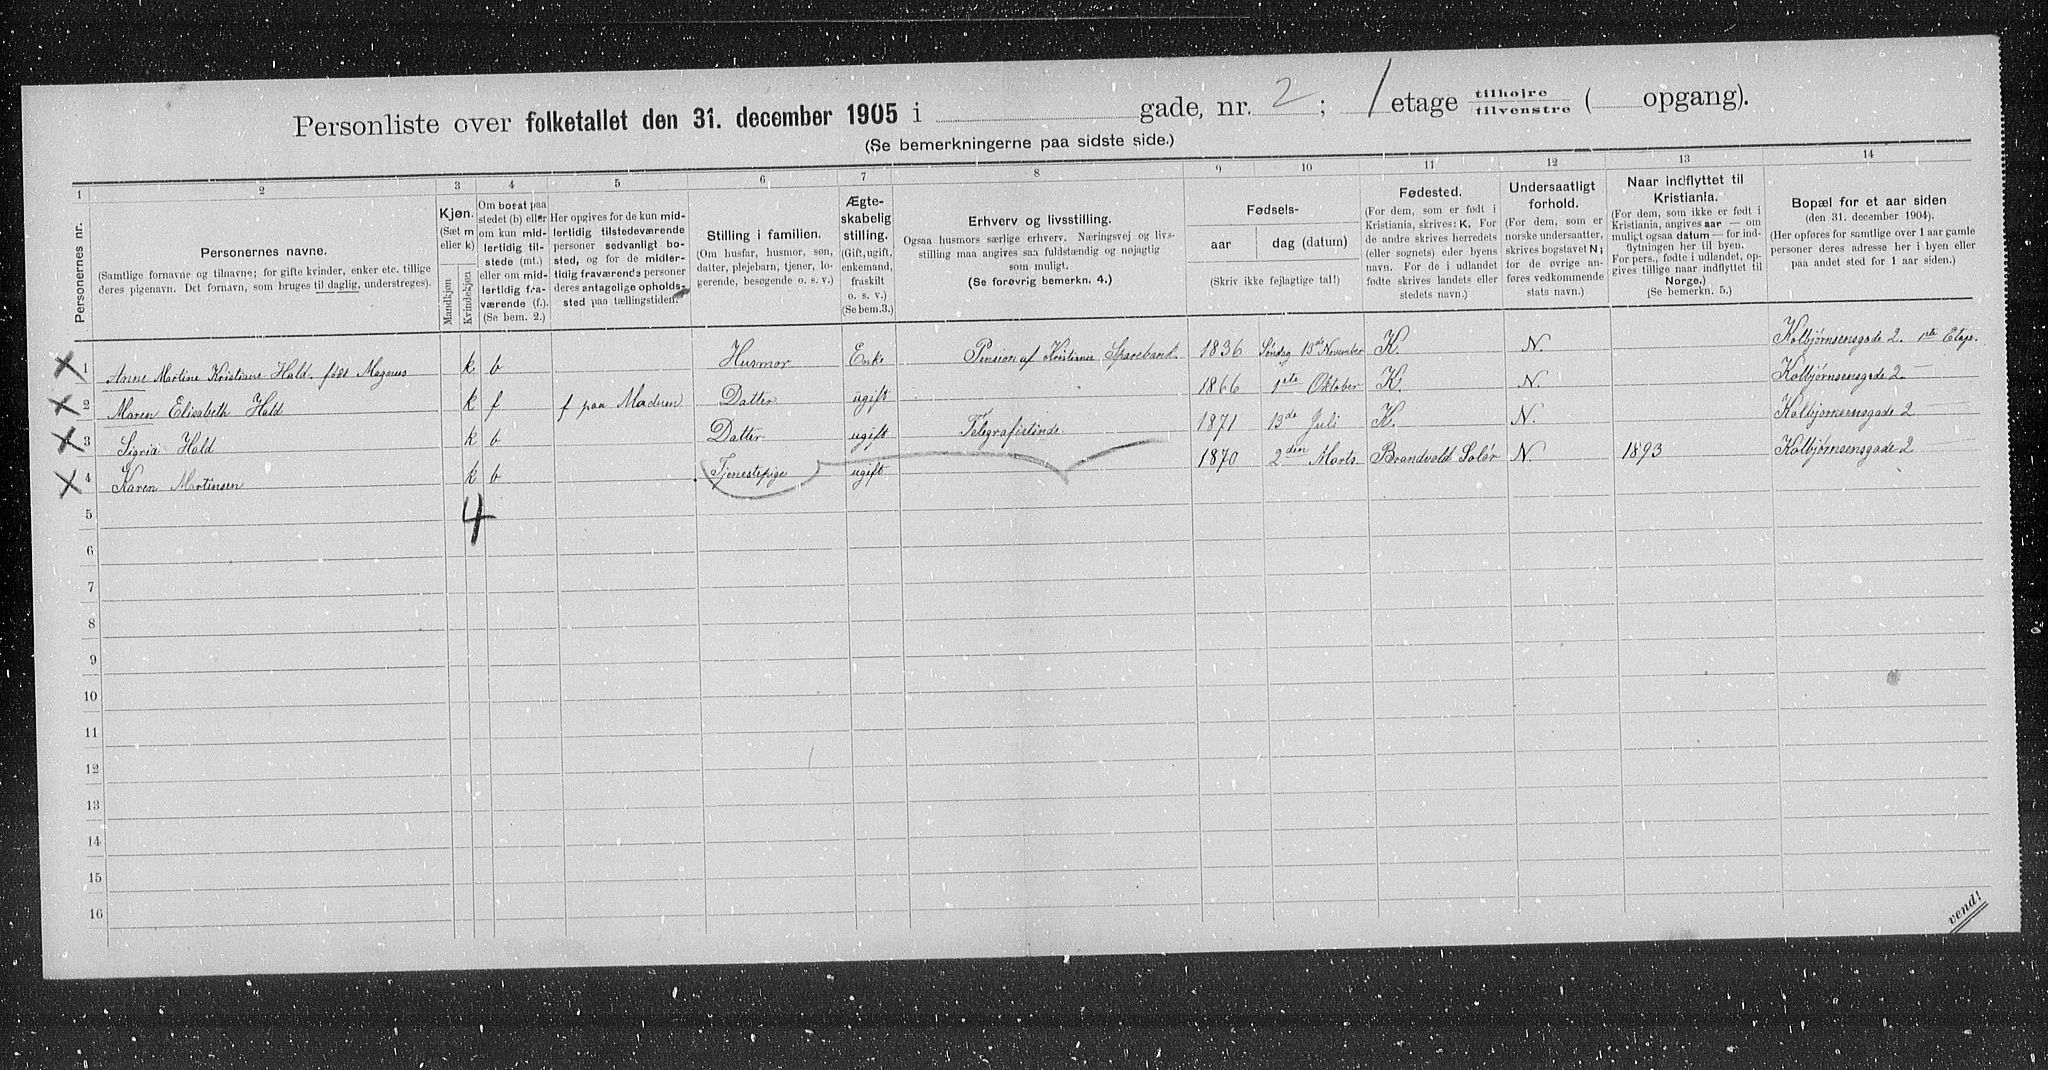 Personliste over folketallet den 31. december 1905 i gade, nr. 2; 1 etage tilhøjre / tilvenstre ( opgang).
(Se bemerkningerne paa sidste side.)
1 2 3 4 5 6 7 8 9 10 11 12 13 14
Personernes nr.
Personernes navne.
(Samtlige fornavne og tilnavne; for gifte kvinder, enker etc. tillige
deres pigenavn. Det fornavn, som bruges til daglig, understreges).
Kjøn.
(Sæt m
eller k)
Mandkjøn
Kvindekjøn
Om borat paa
stedet (b) eller
om kun mid-
lertidig til-
stede (mt.)
eller om mid-
lertidig fra-
værende (f.).
(Se bem. 2.)
Her opgives for de kun mid-
lertidig tilstedeværende
personer sedvanligt bo-
sted, og for de midler-
tidig fraværende personer
deres antagelige opholds-
sted paa tællingstiden.
Stilling i familien.
(Om husfar, husmor, søn,
datter, plejebarn, tjener, lo-
gerende, besøgende o. s. v.)
Ægte-
skabelig
stilling.
(Gift, ugift,
enkemand,
fraskilt
o. s. v.)
(Se bem.3.)
Erhverv og livsstilling.
Ogsaa husmors særlige erhverv. Næringsvej og livs-
stilling maa angives saa fuldstændig og nøjagtig
som muligt.
(Se forøvrig bemerkn. 4.)
Fødsels-
aar
dag (datum)
(Skriv ikke fejlagtige tal!)
Fødested.
(For dem, som er født i
Kristiania, skrives: K. For
de andre skrives herredets
(eller sognets) eller byens
navn. For de i udlandet
fødte skrives landets eller
stedets navn.)
Undersaatligt
forhold.
(For dem, som er
norske undersaatter,
skrives bogstavet N;
for de øvrige an-
føres vedkommende
stats navn.)
Naar indflyttet til
Kristiania.
(For dem, som ikke er født i
Kristiania, angives aar — om
muligt ogsaa datum — for ind-
flytningen her til byen.
For pers., fødte i udlandet, op-
gives tillige naar indflyttet til
Norge.)
(Se bemerkn. 5.)
Bopæl for et aar siden
(den 31. december 1904).
(Her opføres for samtlige over 1 aar gamle
personer deres adresse her i byen eller
paa andet sted for 1 aar siden.)
X 1 Anne Martine Kristiane Hald født Magnus k b Husmor Enke Pension af Kristiania Sparebank 1836 Søndag 13de November K. N. Kolbjørnsensgade 2. 1ste Etage.
X 2 Maren Elisabeth Hald k f f paa Madum Datter ugift 1866 1ste Oktober K. N. Kolbjørnsensgade 2 —
X 3 Sigrid Hald k b Datter ugift Telegrafistinde 1871 13de Juli K. N. Kolbjørnsensgade 2 —
X 4 Karen Martinsen k b Tjenestepige ugift 1870 2den Marts Brandvold Solør N. 1893 Kolbjørnsensgade 2 —
5 4
6
7
8
9
10
11
12
13
14
15
16
vend!